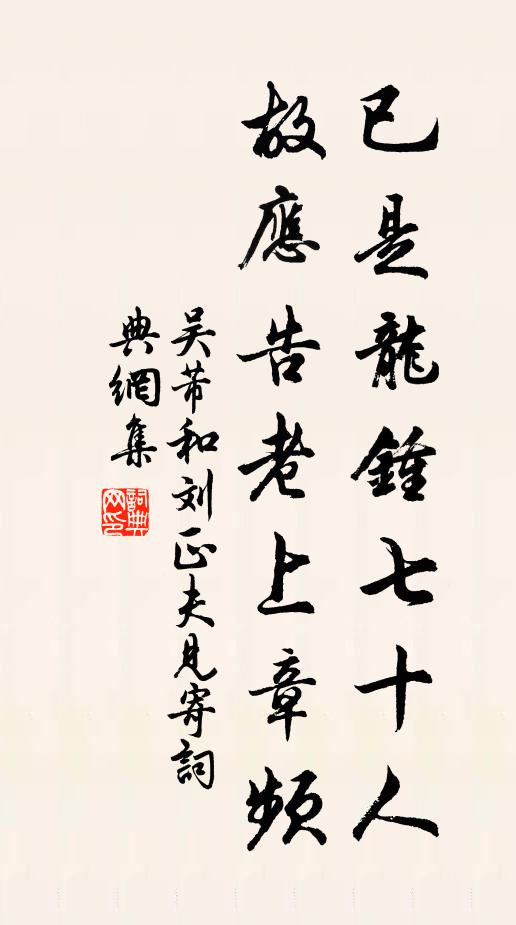 已是龍鍾七十人
故應告老上章頻
吴芾和刘正夫見寄詞
典網集
詞典网印